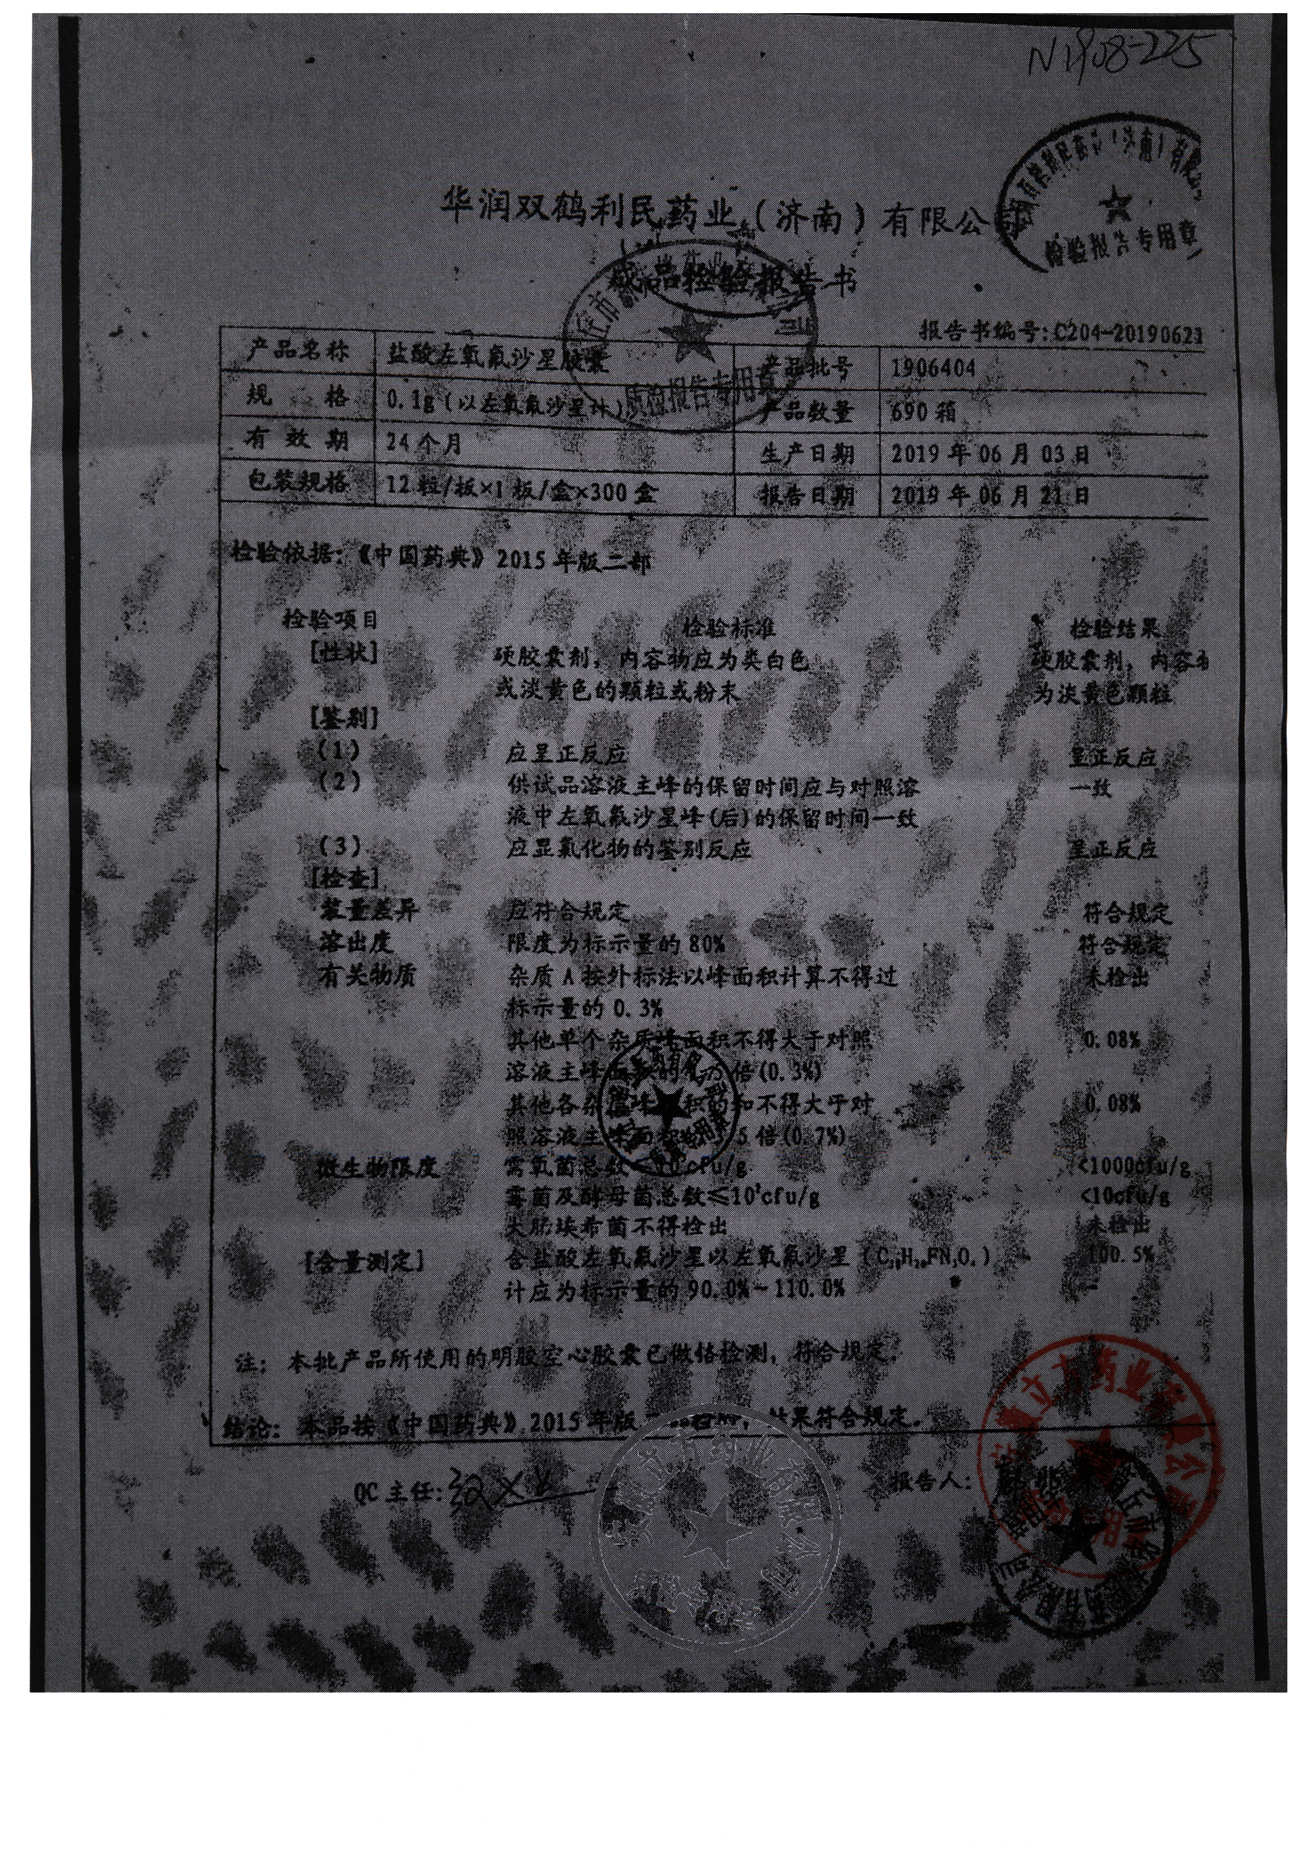 N1908-225
华润双鹤利民药业（济南）有限公
检验报告专用章
成品检验报告书
质检报告专用章
报告书编号:C204-20190621
产品名称 盐酸左氧氟沙星胶囊 产品批号 1906404
规 格 0.1g（以左氧氟沙星计） 产品数量 690 箱
有 效 期 24 个月 生产日期 2019 年 06 月 03 日
包装规格 12 粒/板×1 板/盒×300 盒 报告日期 2019 年 06 月 21 日
检验依据：《中国药典》2015 年版二部
检验项目 检验标准 检验结果
[性状] 硬胶囊剂，内容物应为类白色 硬胶囊剂，内容
或淡黄色的颗粒或粉末 为淡黄色颗粒
[鉴别]
（1） 应呈正反应 呈正反应
（2） 供试品溶液主峰的保留时间应与对照溶 一致
液中左氧氟沙星峰(后)的保留时间一致
（3） 应显氯化物的鉴别反应 呈正反应
[检查]
装量差异 应符合规定 符合规定
溶出度 限度为标示量的 80% 符合规定
有关物质 杂质 A 按外标法以峰面积计算不得过 未检出
标示量的 0.3%
其他单个杂质峰面积不得大于对照 0.08%
溶液主峰面积的 倍(0.3%)
其他各杂质峰面积的和不得大于对 0.08%
照溶液主峰面积 5 倍(0.7%)
微生物限度 需氧菌总数 cfu/g <1000cfu/g
霉菌及酵母菌总数≤10²cfu/g <10cfu/g
大肠埃希菌不得检出 未检出
[含量测定] 含盐酸左氧氟沙星以左氧氟沙星（C₁₈H₂₀FN₃O₄） 100.5%
计应为标示量的 90.0%～110.0%
注： 本批产品所使用的明胶空心胶囊已做铬检测，符合规定。
结论： 本品按《中国药典》2015 年版 结果符合规定。
QC 主任: 报告人:
药业有限公司